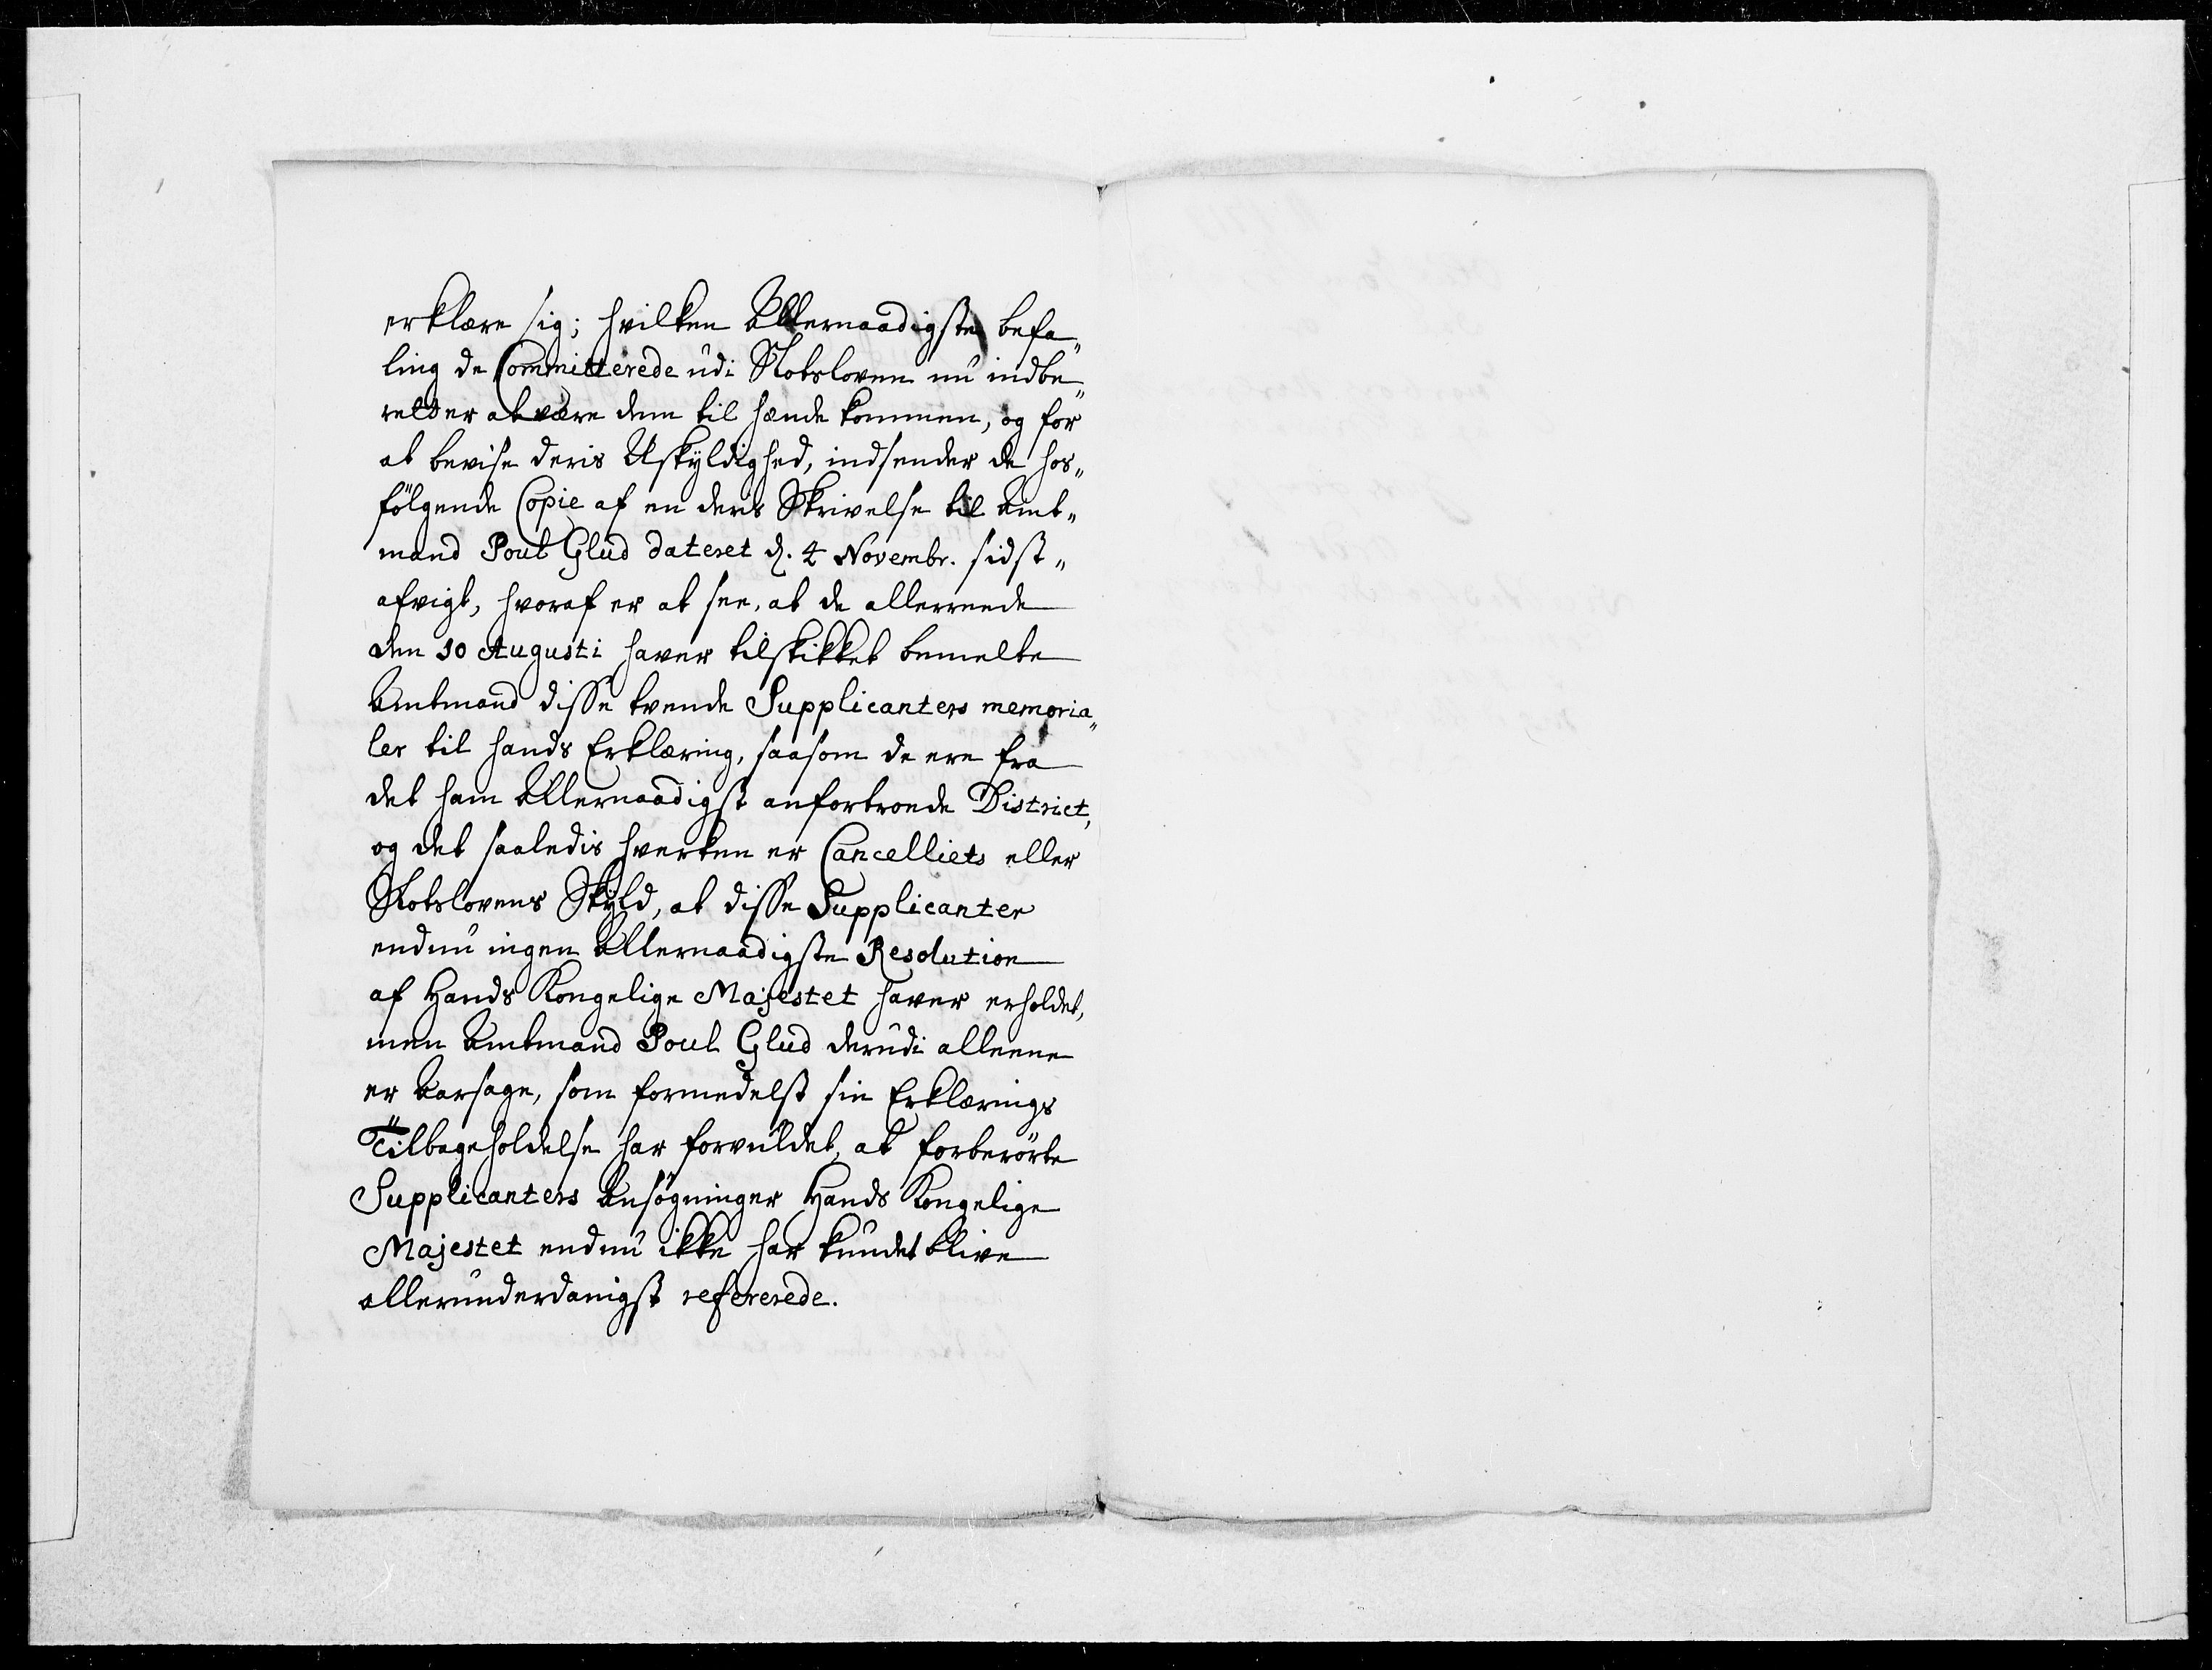 erklære sig; hvilken Allernaadigste befa„
ling de Committerede udi Slotsloven nu indbe„
retter at være dem til hænde kommen, og for
at bevise deris Uskyldighed, indsender de hos„
følgende Copie af en deris Skrivelse til Amt„
mand Poul Glud dateret d. 4 Novembr. sidst„
afvigt, hvoraf er at see, at de allerreede
den 30 Augusti haver tilskikket bemelte
Amtmand disse tvende Supplicanters memoria„
ler til hands Erklæring, saasom de ere fra
det ham Allernaadigst anfortroede District,
og det saaledis hverken er Cancelliets eller
Slotslovens Skyld, at disse Supplicanter
endnu ingen Allernaadigste Resolution
af Hands Kongelige Majestet haver erholdet,
men Amtmand Poul Glud derudi alleene
er Aarsage, som formedelst sin Erklærings
Tilbageholdelse har forvuldet, at forberørte
Supplicanters Ansøgninger Hands Kongelige
Majestet endnu ikke har kundet blive
allerunderdanigst refererede.